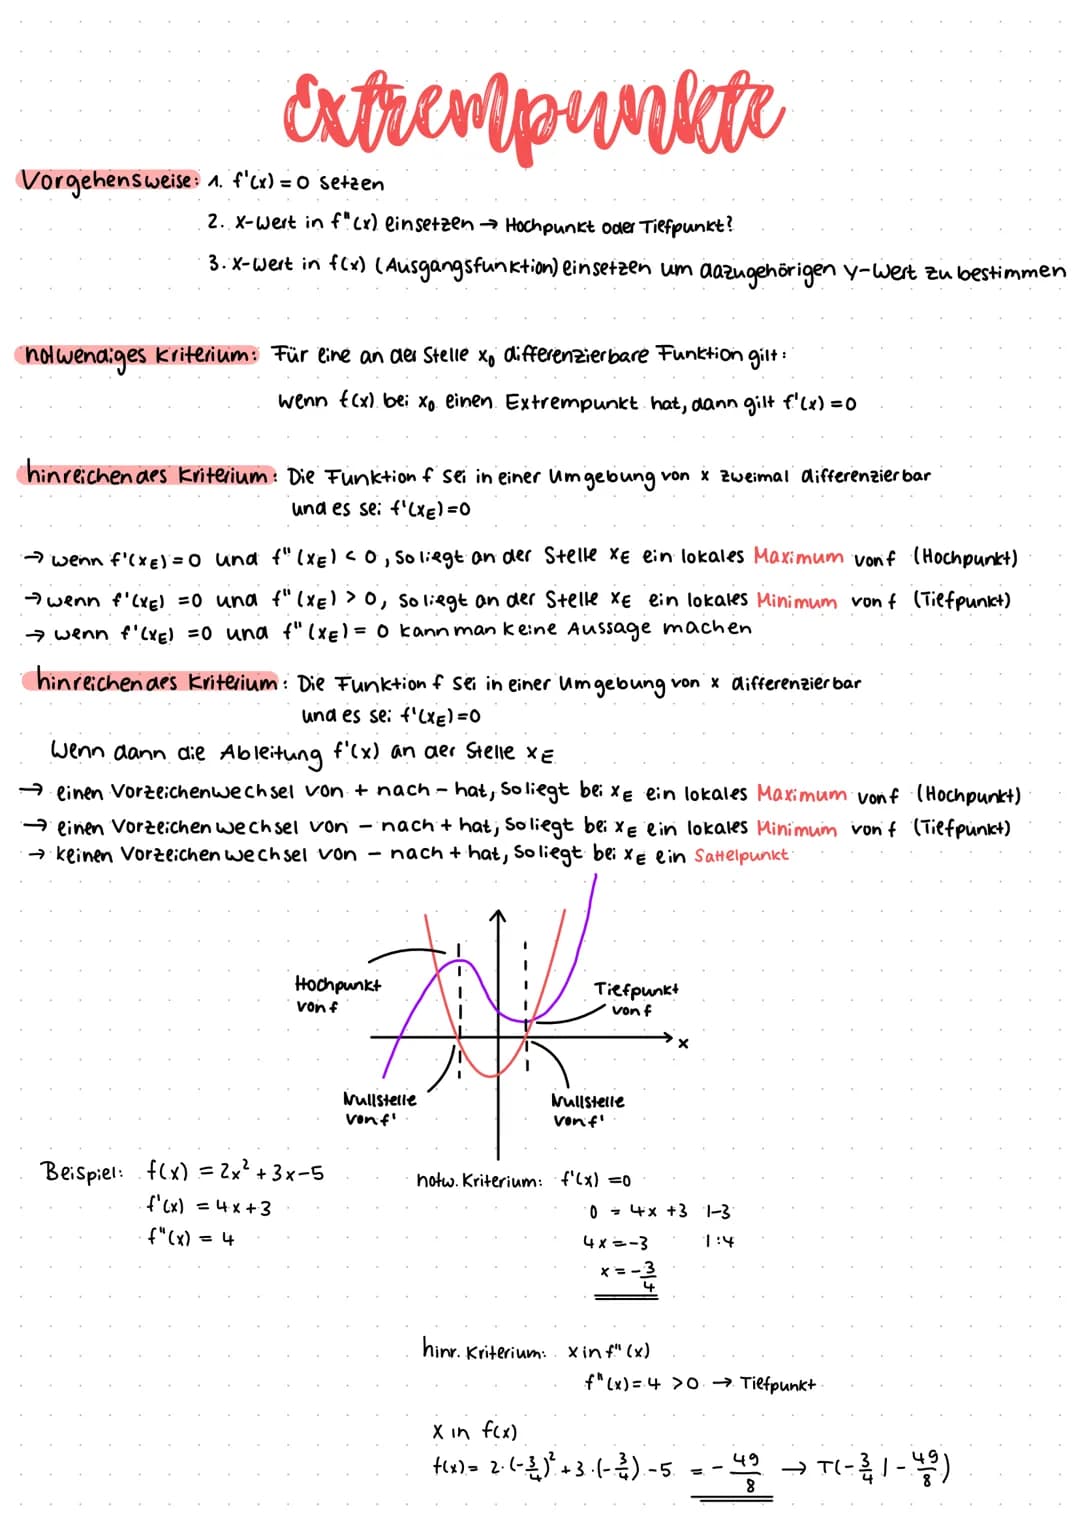 Extrempunkte
Vorgehensweise: 1. f'(x) = 0 setzen
2. x-Wert in f"(x) einsetzen → Hochpunkt oder Tiefpunkt?
3. x-Wert in f(x) (Ausgangsfunktion) einsetzen um dazugehörigen y-Wert zu bestimmen
notwendiges Kriterium: Für eine an der Stelle x₀ differenzierbare Funktion gilt:
wenn f(x) bei x₀ einen Extrempunkt hat, dann gilt f'(x) = 0
hinreichendes Kriterium: Die Funktion f sei in einer Umgebung von x zweimal differenzierbar
und es sei f'(x_E) = 0
→ wenn f'(x_E) = 0 und f"(x_E) < 0, so liegt an der Stelle x_E ein lokales Maximum von f (Hochpunkt)
→ wenn f'(x_E) = 0 und f"(x_E) > 0, so liegt an der Stelle x_E ein lokales Minimum von f (Tiefpunkt)
→ wenn f'(x_E) = 0 und f"(x_E) = 0 kann man keine Aussage machen
hinreichendes Kriterium: Die Funktion f sei in einer Umgebung von x differenzierbar
und es sei f'(x_E) = 0
Wenn dann die Ableitung f'(x) an der Stelle x_E
→ einen Vorzeichenwechsel von + nach - hat, so liegt bei x_E ein lokales Maximum von f (Hochpunkt)
→ einen Vorzeichenwechsel von - nach + hat, so liegt bei x_E ein lokales Minimum von f (Tiefpunkt)
→ keinen Vorzeichenwechsel von - nach + hat, so liegt bei x_E ein Sattelpunkt
Hochpunkt
von f
Tiefpunkt
von f
x
Nullstelle
von f'
Nullstelle
von f'
Beispiel: f(x) = 2x² + 3x - 5
f'(x) = 4x + 3
f"(x) = 4
notw. Kriterium: f'(x) = 0
0 = 4x + 3 |-3
4x = -3 |:4
x = -3/4
hinr. Kriterium: x in f"(x)
f"(x) = 4 > 0 → Tiefpunkt
x in f(x)
f(x) = 2·(-3/4)² + 3·(-3/4) - 5 = -49/8 → T(-3/4 | -49/8)